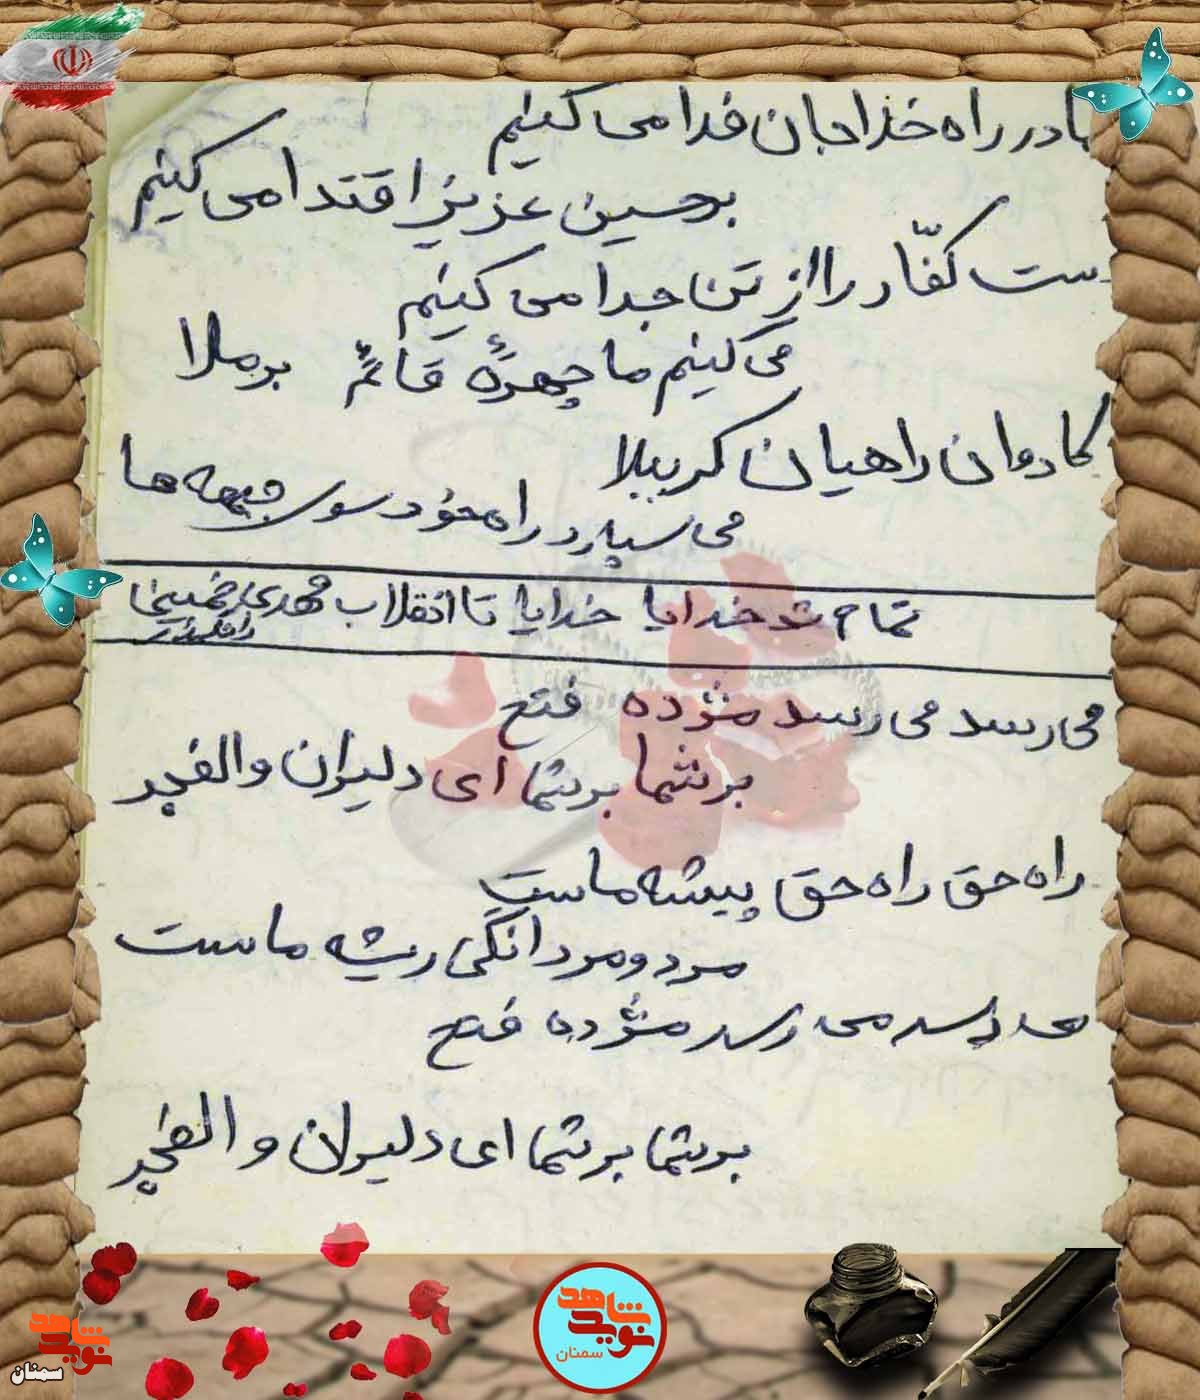 ما در راه خدا جان فدا می کنیم
بر حسین عزیز اقتدا می کنیم
دست کفّار را از تن جدا می کنیم
می کنیم ما چهرهٔ قائم برملا
کاروان راهیان کربلا
می سپارد راه خود سوی جبهه ها
تمام شد خدایا خدایا تا انقلاب مهدی خمینی
را نگهدار
می رسد می رسد مژده فتح
بر شما بر شما ای دلیران والفجر
راه حق راه حق پیشه ماست
مرد و مردانگی ریشه ماست
می رسد می رسد مژده فتح
بر شما بر شما ای دلیران والفجر
نوید شاهد
سمنان
نوید شاهد
سمنان